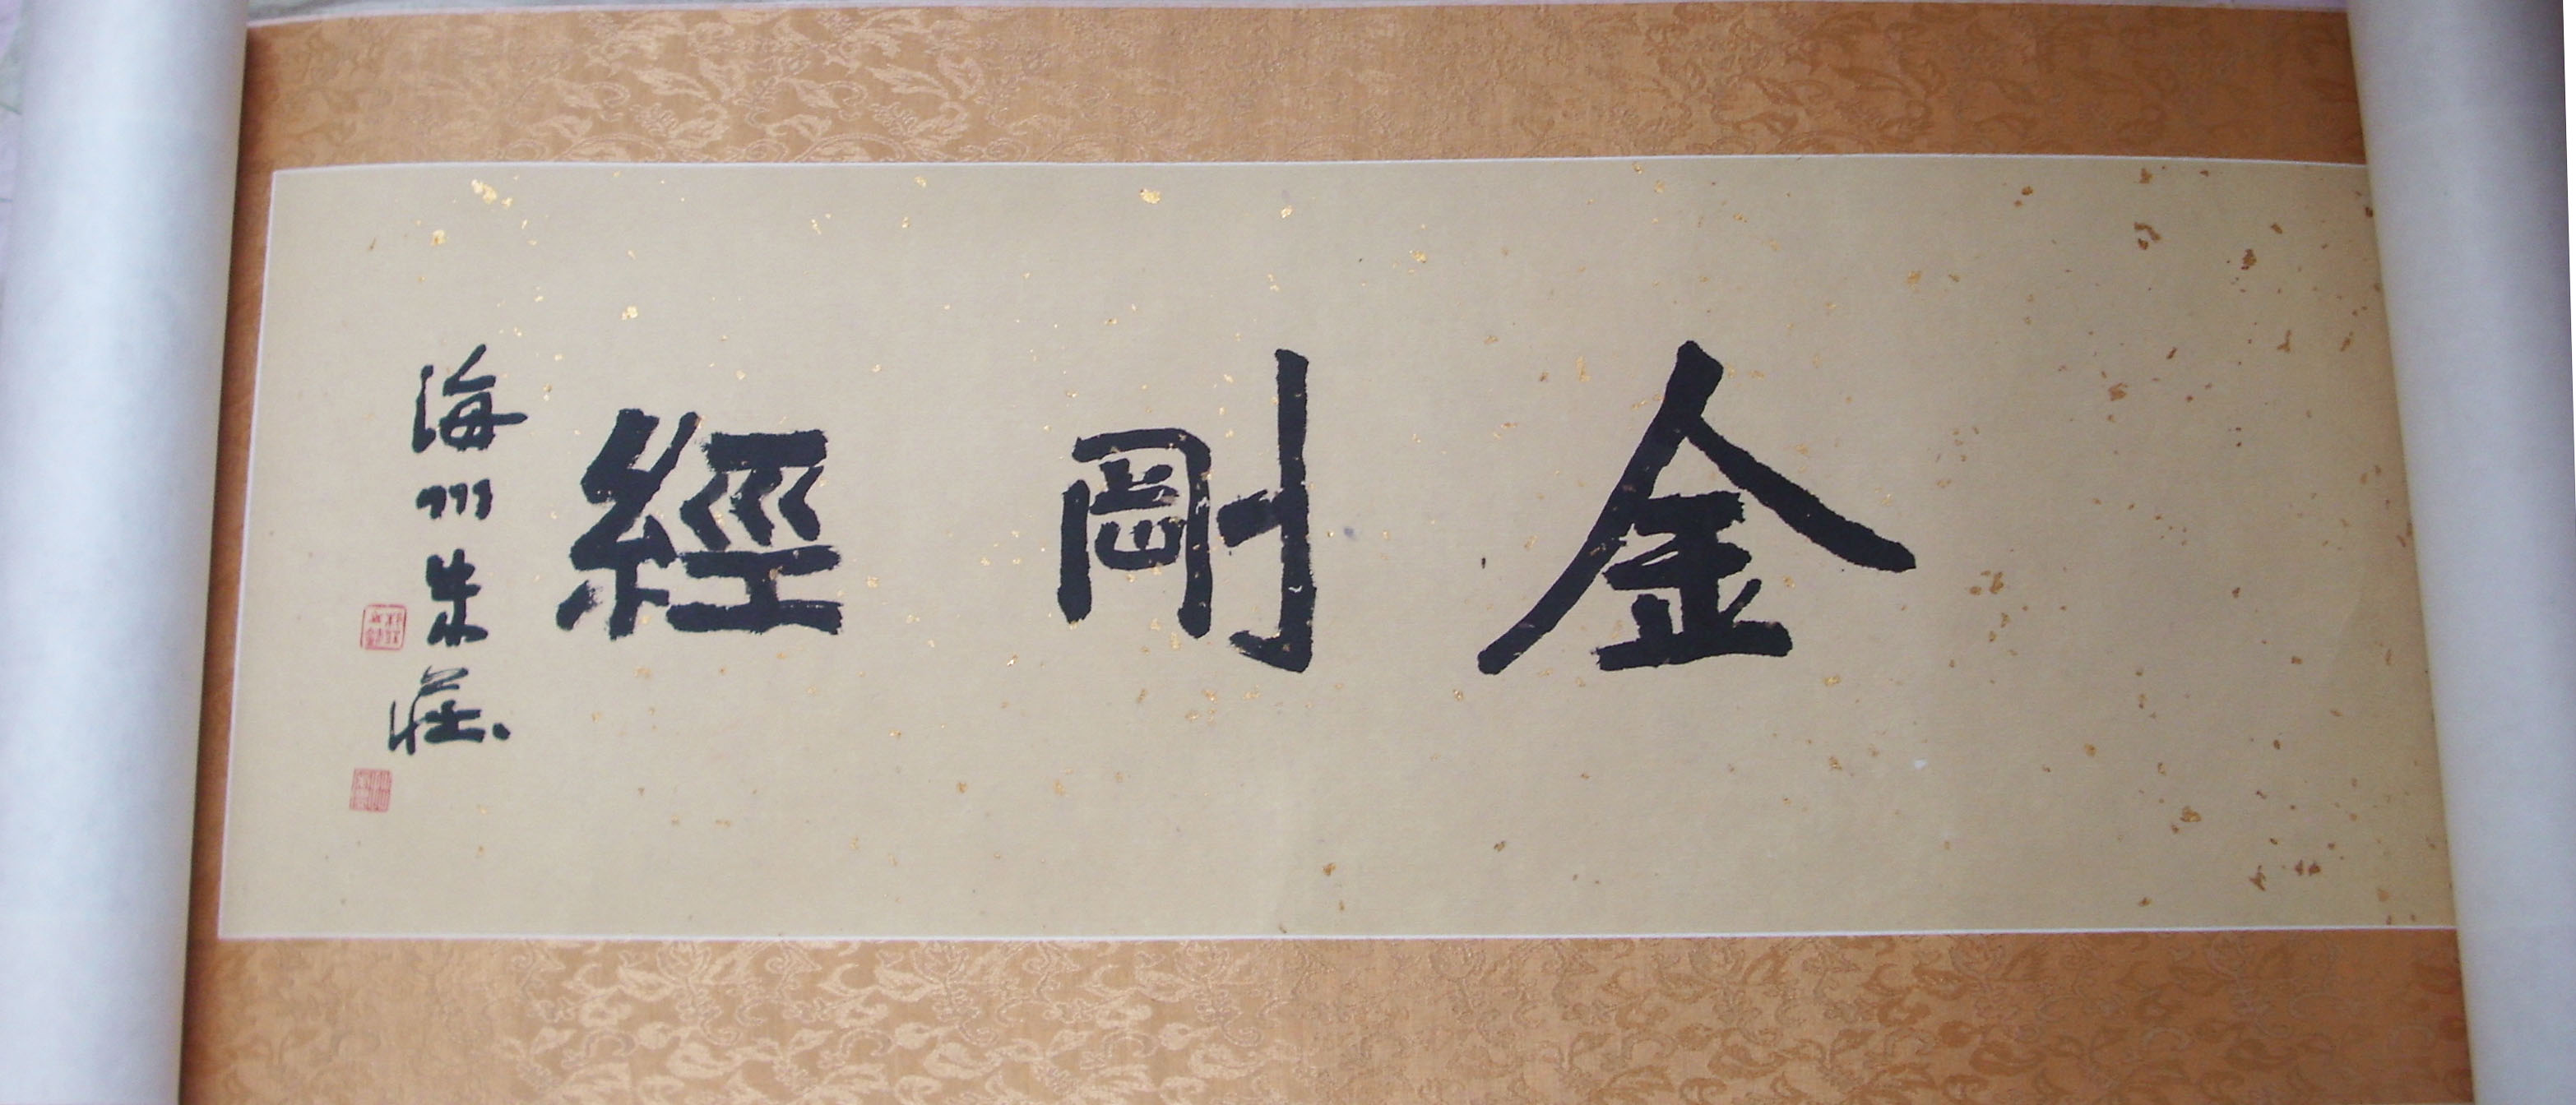 金剛經
海州朱莊